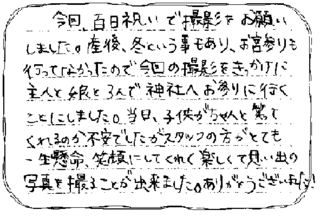 今回、百日祝いで撮影をお願い
しました。産後、冬という事もあり、お宮参りも
行ってなかったので今回の撮影をきっかけに
主人と娘と3人で神社へお参りに行く
ことにしました。当日、子供がちゃんと笑って
くれるのか不安でしたがスタッフの方がとても
一生懸命、笑顔にしてくれて楽しくて思い出の
写真を撮ることが出来ました。ありがとうございました!